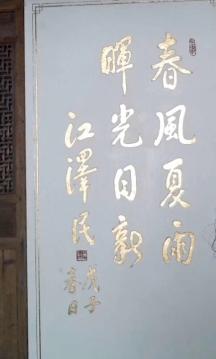 春風夏雨
暉光日新
江澤民
戊子
春日